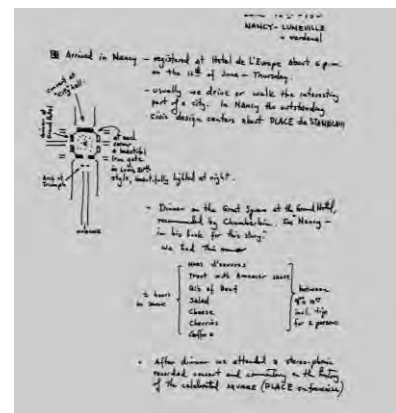 NANCY - LUNEVILLE
+ verdenal
Arrived in Nancy - registered at Hotel de L'Europe about 6 p.m.
on the 12th of June - Thursday.
- usually we drive or walk the interesting
part of a city. In Nancy the outstanding
civic design centers about PLACE de STANISLAUS
concert at
"city hall"
dinner at
at each
corner
a beautiful
iron gate
in Louis XVth
style, beautifully lighted at night.
Arch of
Triumph
- Dinner on the Great Square at the Grand Hotel,
recommended by Chamberlain. See "Nancy" -
in his book for this story.
We had this
Hors d'oeuvres
Trout with Armoricaine sauce
Rib of Beef
Salad
Cheese
Cherries
Coffee
2 hours
between
incl. tip
for 2 persons
- After dinner we attended a stereo-phonic
recorded concert and commentary on the history
of the celebrated square (PLACE